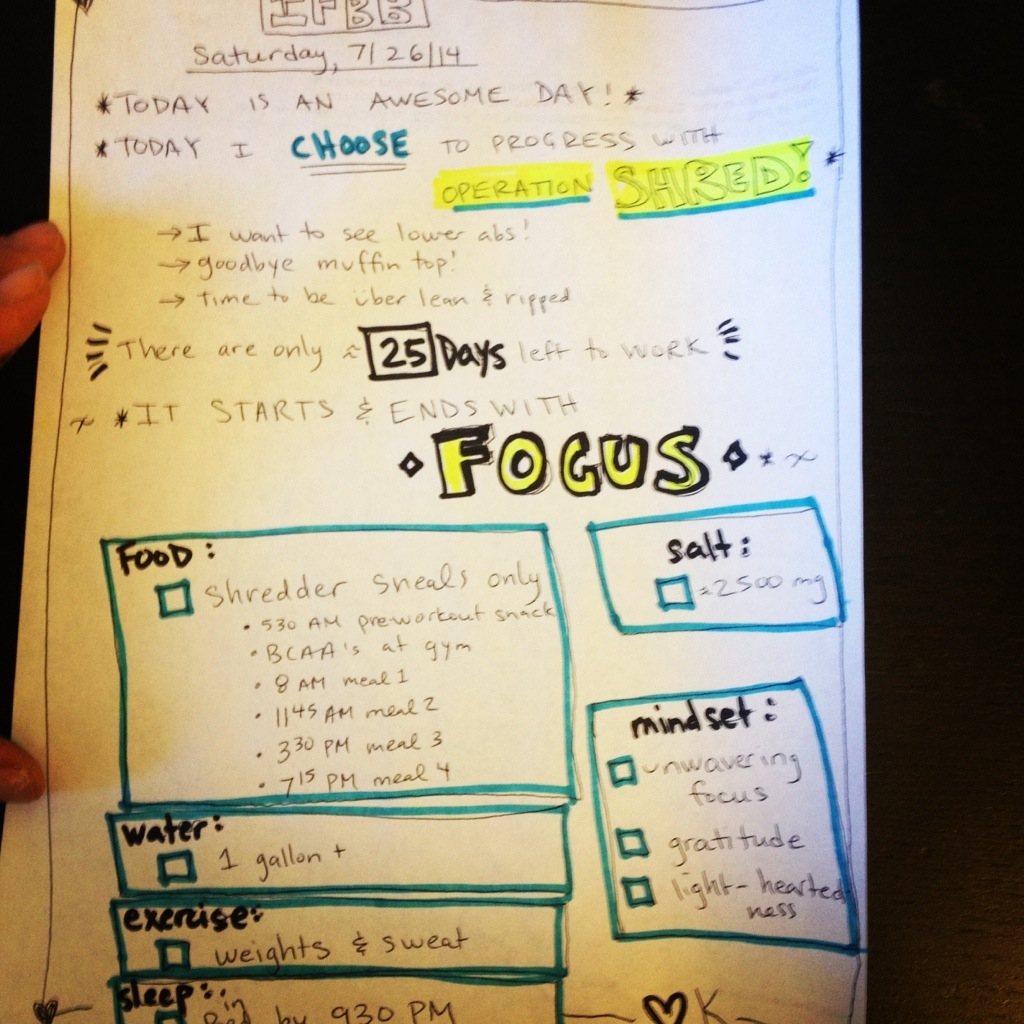 IFBB
Saturday, 7/26/14
*TODAY IS AN AWESOME DAY! *
*TODAY I CHOOSE TO PROGRESS WITH
OPERATION SHRED! *
→ I want to see lower abs!
→ goodbye muffin top!
→ time to be über lean & ripped
There are only ~ 25 Days left to WORK
~ *IT STARTS & ENDS WITH
FOCUS * ~
FOOD:
shredder sneals only
• 530 AM preworkout snack
• BCAA's at gym
• 8 AM meal 1
• 1145 AM meal 2
• 330 PM meal 3
• 715 PM meal 4
water:
1 gallon +
exercise:
weights & sweat
sleep:
in
Bed by 930 PM
salt:
≈2500 mg
mindset:
unwavering
focus
gratitude
light-hearted
ness
♡ K